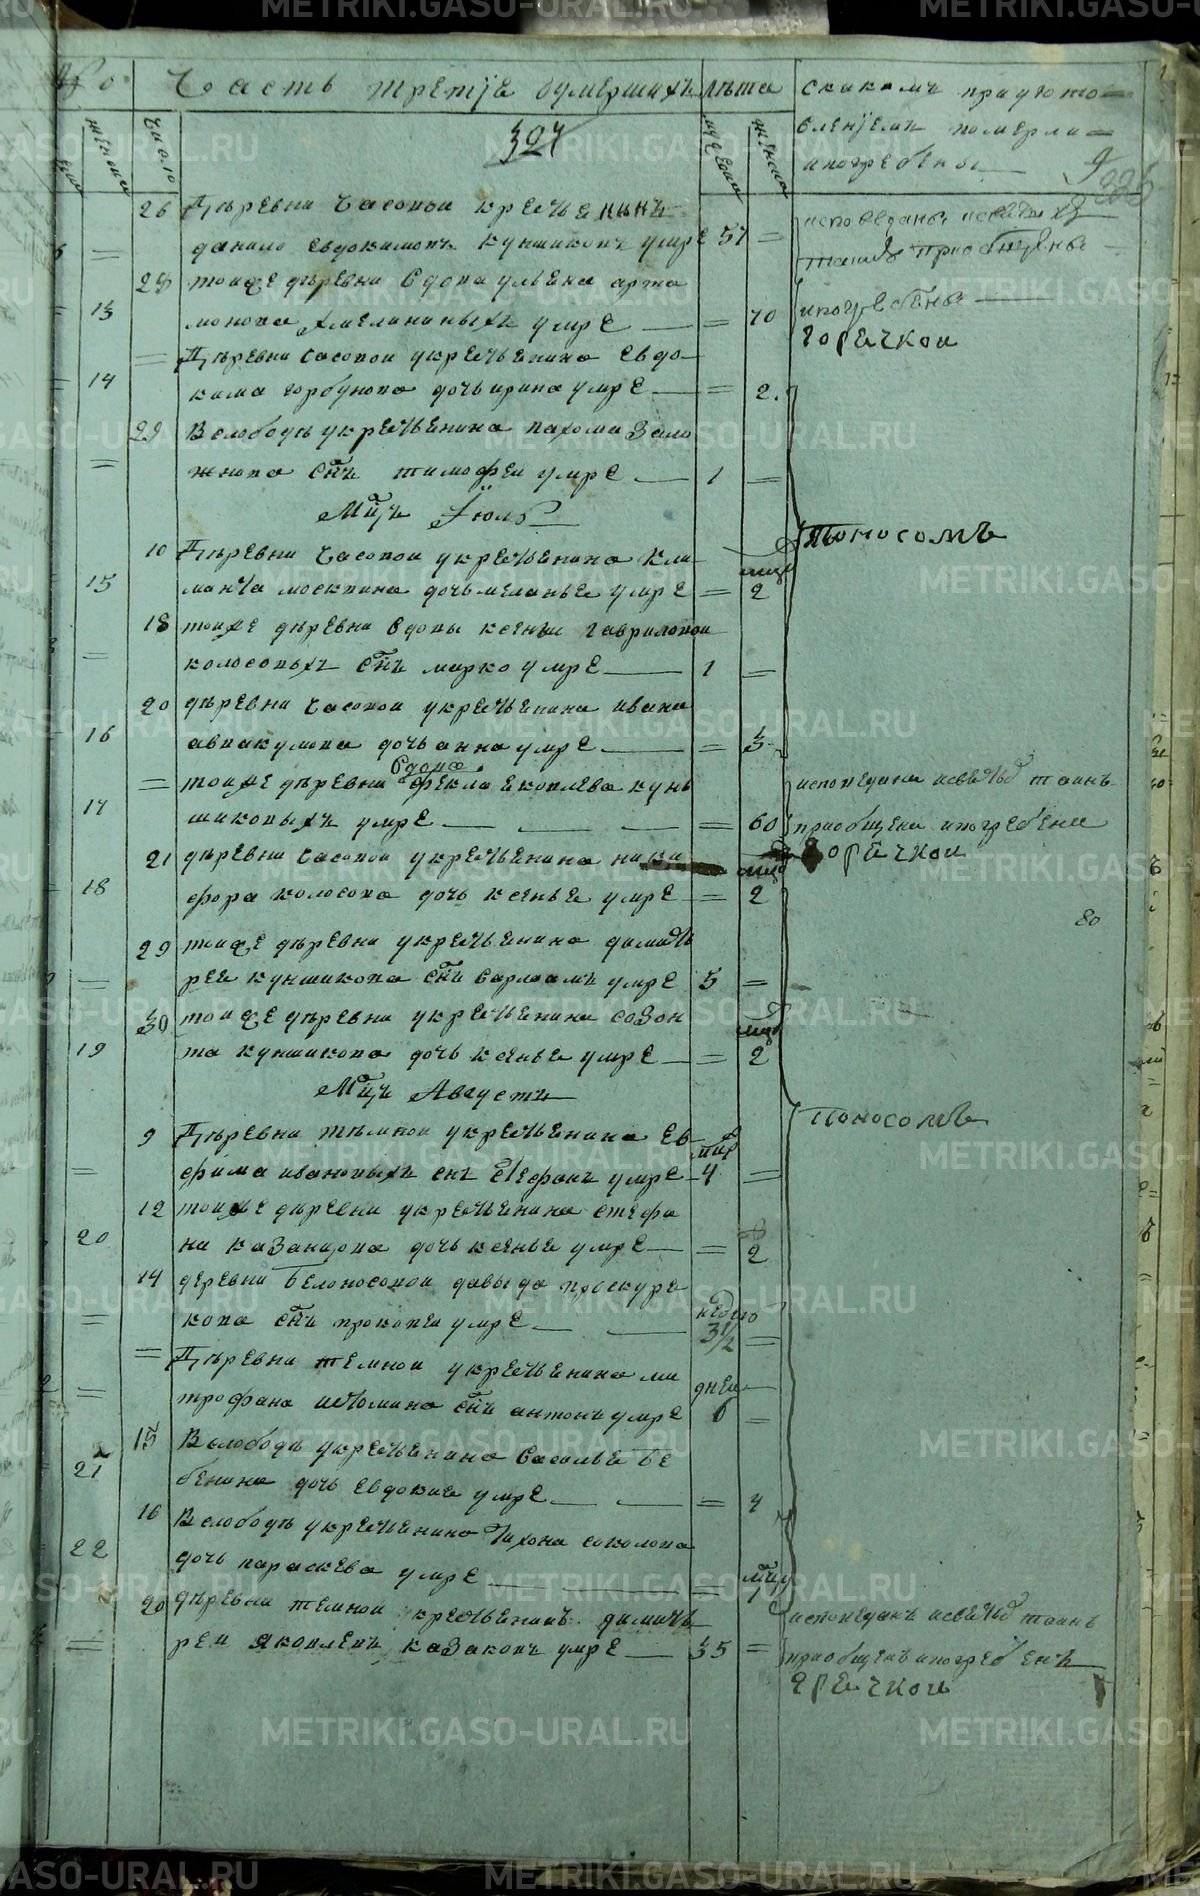 Часть третїя оумершихъ лѣта
скакимъ приугото-
вленїемъ померли
ипогребены
женска
число
мужеска
женска
324
26 Деревни Часовой крестьянинъ
данило евдокимовъ кукшиковъ умре 57 =
исповѣданы исвятыхъ
таинъ приобщены
28 тоиже деревни вдова ульяна арта
13 монова хмелининыхъ умре = 70
ипогребены
горячкои
= Деревни часовои укрестьянина евдо-
14 кима горбунова дочь ирина умре = 2
29 Вслободѣ укрестьянина пахома зало
= жнова сынъ тимофеи умре 1 =
Мцъ Іюль
10 Деревни часовои укрестьянина кли
мцо
15 мантья москвина дочь меланья умре = 2
поносомъ
18 тоиже деревни вдовы ксеньи гавриловои
= колосовыхъ сынъ марко умре 1 =
20 деревни часовои укрестьянина ивана
16 аввакумова дочь анна умре = 3
вдова
= тоиже деревни фекла яковлева кук
17 шиковыхъ умре = 60
исповѣдана исвятыхъ таинъ
приобщена ипогребена
горячкои
21 деревни часовои укрестьянина ники
18 фора колосова дочь ксенья умре = 2
80
29 тоиже деревни укрестьянина димитъ
= рея кукшикова сынъ варлаамъ умре 3 =
30 тоиже деревни укрестьянина созон
19 та кукшикова дочь ксенья умре = 2
Мцъ Августъ
9 Деревни темнои укрестьянина ев
поносомъ
= фима ивановыхъ снъ стефанъ умре 4 =
12 тоиже деревни укрестьянина стефа
20 на казанцова дочь ксенья умре = 2
14 деревни белоносовои давыда проскуря
= кова сынъ прокопеи умре 3 1/2 =
= Деревни темнои укрестьянина ми
днеи
= трофана истомина сынъ антонъ умре 6 =
15 Вслободѣ укрестьянина василья бе
21 бенина дочь евдокия умре = 4
16 Вслободѣ укрестьянина тихона соколова
22 дочь параскева умре =
20 деревни темнои крестьянинъ димитъ
= реи яковлевъ казаковъ умре 35 =
исповѣданъ исвятыхъ таинъ
приобщенъ ипогребенъ
горячкои
METRIKI.GASO-URAL.RU